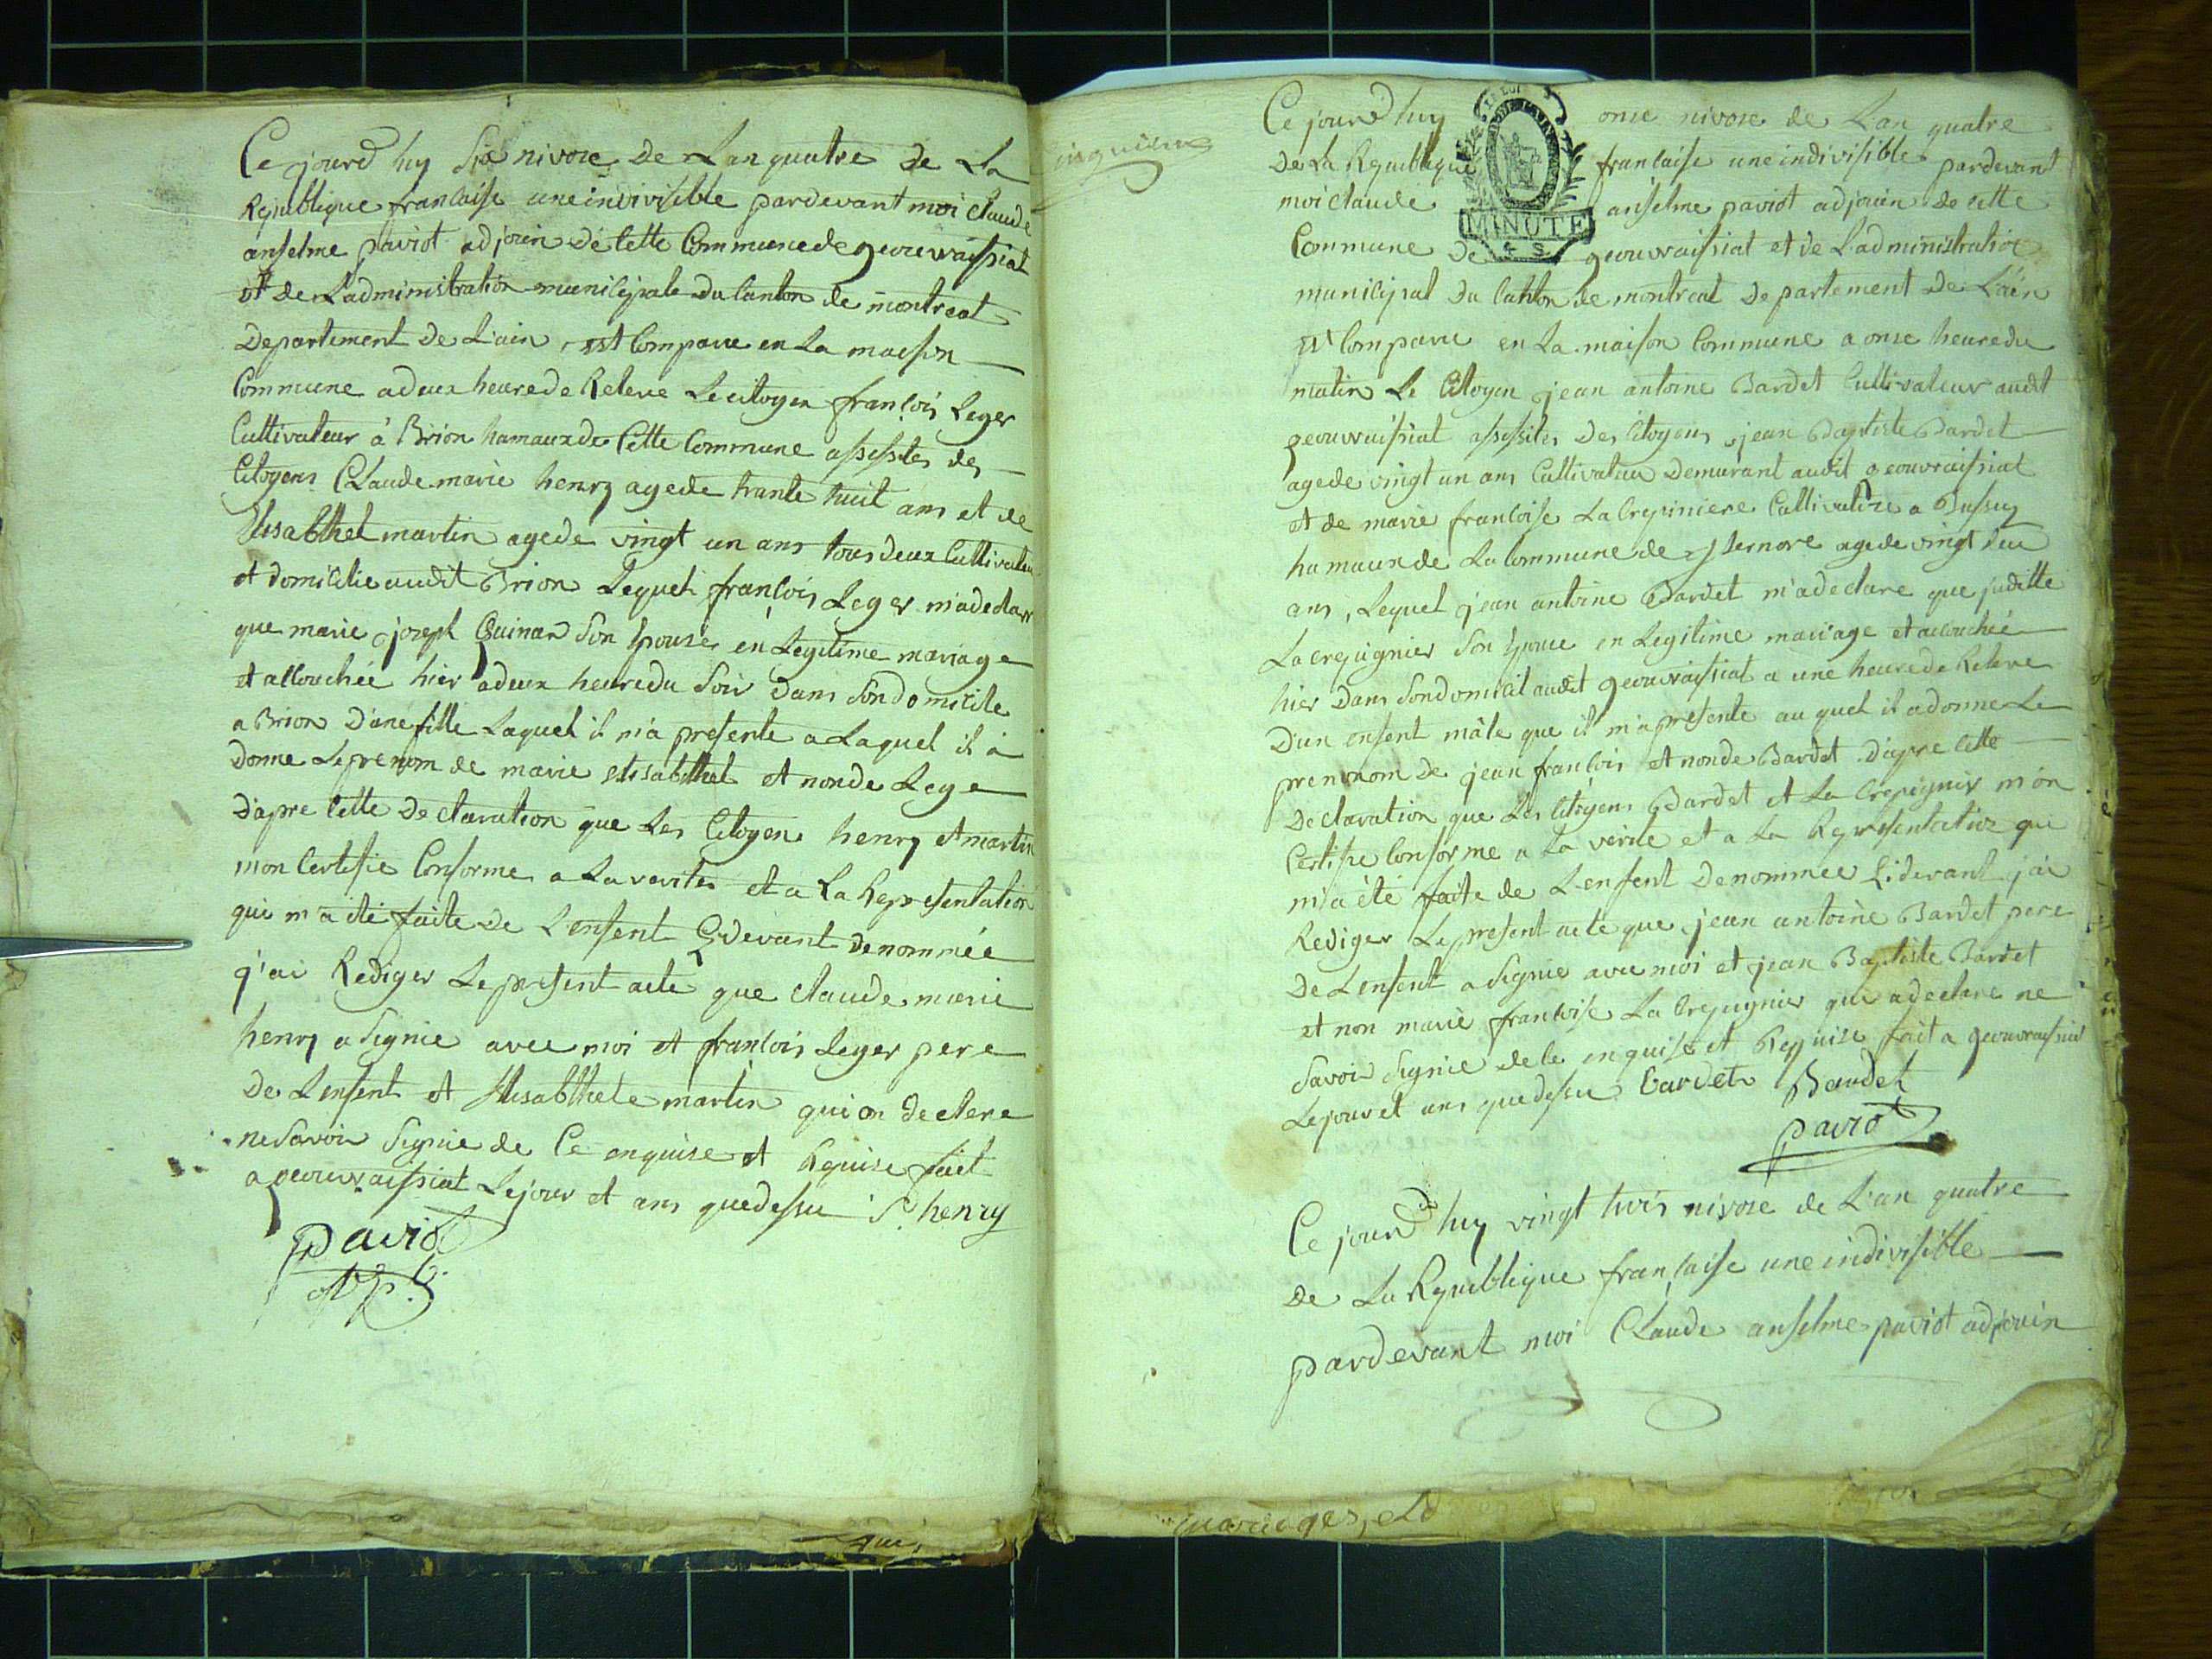 Ce jourd huy Six nivose De Lan quatre de La
Republique francaise une indivisible pardevant moi claude
anselme paviot adjoin de Cette Commune de geouvraissiat
et de Ladministration municipale du Canton de montreal
Departement De L'ain, est Comparu en La maison
Commune a deux heure de Releve Le citoyen françois Leger
Cultivateur à Brion hamaux de Cette Commune assistes des
Citoyens CLaude marie henry agede trante huit ans et de
Elisabthet martin agede vingt un ans tous deux Cultivateur
et domicilie audit Brion Lequel françois Leger m'a declare
que marie joseph Quinar Son Epouse en Legitime mariage
et accouchée hier a deux heure du Soir dans Son domicile
a Brion D'une fille Laquel il m'a presente a Laquel il à
donne Le prenom de marie elisabthet et nonde Lege
D'apre Cette Declaration que Les Citoyen henry et martin
mon Certifie Conforme a La verites et a La Representation
qui m'a été faite de L'enfent Cydevant denommée
j'ai Rediger Le present acte que claude marie
henry a Signie avec moi et françois Leger pere
De Lenfent et Elisabthete martin qui on declere
ne Savoir Signie de Ce enquise et Requise fait
a geouvraissiat Le jour et ans quedessu C. henry
Paviot
Ce jourd huy onse nivose de L'an quatre
De La Republique francaise une indivisible pardevant
moi claude anselme paviot adjouin de cette
MINUTE
Commune de geouvraissiat et de L'administration
municipal du Canton de montreal departement de L'ain
est Comparu en La maison Commune a onse heure du
matin Le Citoyen jean antoine Bardet Cultivateur audit
geouvraissiat assistes Des Citoyens jean Baptiste Bardet
agede vingt un ans Cultivateur Demurant audit geouvraissiat
et de marie francoise La Crepiniere Cultivatire a Bussy
hamaux de La Commune de Isernore agede vingt deu
ans, Lequel jean antoine Bardet m'a declare que juditte
Lacrepignier Son Epouse en Legitime mariage et accouchée
hier Dans Son domicil audit geouvraissiat a une heure de Releve
D'un enfent mâle que il m'a presente au quel il a donne Le
prenonom de jean françois et nonde Bardet D'apre Cette
Declaration que Les Citoyens Bardet et La Crepignir m'on
Certifie Conforme a La verite et a La Representation qui
m'a été faite de Lenfent Denommee Cidevant j'ai
Rediger Le present acte que jean antoine Bardet pere
De Lenfent a Signie avec moi et jean Baptiste Bardet
et non marie francoise La Crepignier qui a declare ne
Savoir Signie de Ce enquise et Requise fait a geouvraissiat
Le jour et ans quedessu Bardet Bardet
Paviot
Ce jourd huy vingt trois nivose de L'an quatre
De La Republique française une indivisible
pardevant moi CLaude anselme paviot adjouin